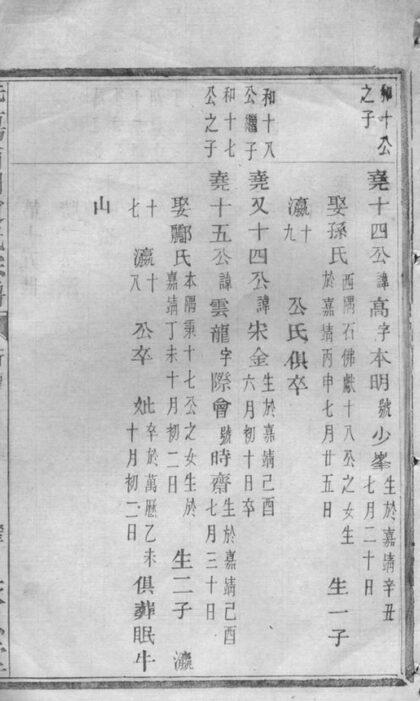 和十公之子
堯十四公諱高字本明號少峯生於嘉靖辛丑七月二十日
娶孫氏西隅石佛獻十八公之女生於嘉靖丙申七月廿五日 生一子
瀛十九 公氏俱卒
和十八公繼子
堯又十四公諱宋金生於嘉靖己酉六月初十日卒
和十七公之子
堯十五公諱雲龍字際會號時齋生於嘉靖己酉七月三十日
娶酈氏本隅秉十七公之女生於嘉靖丁未十月初二日 生二子 瀛
十七 瀛十八 公卒 妣卒於萬曆乙未十月初二日 俱葬眠牛
山